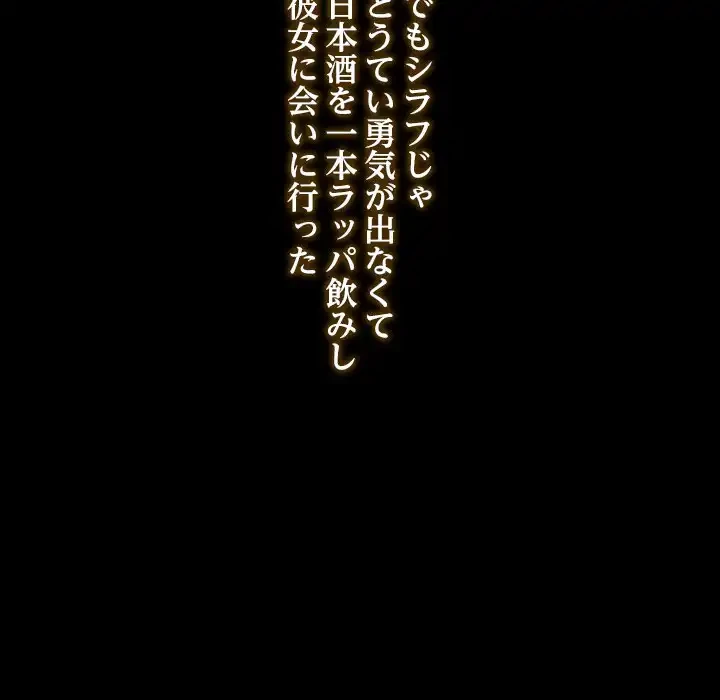 でもシラフじゃ
とうてい勇気が出なくて
日本酒を一本ラッパ飲みし
彼女に会いに行った